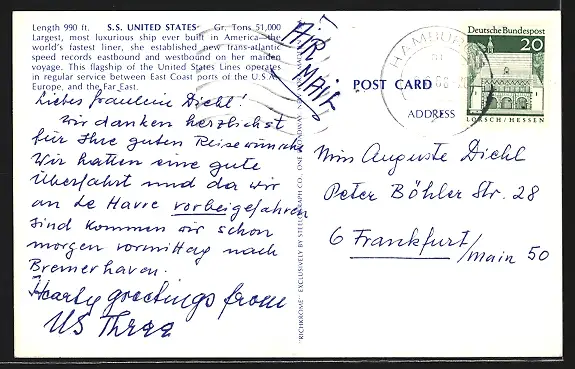 Length 990 ft. S.S. UNITED STATES Gr. Tons 51,000
Largest, most luxurious ship ever built in America—the
world's fastest liner, she established new trans-atlantic
speed records eastbound and westbound on her maiden
voyage. This flagship of the United States Lines operates
in regular service between East Coast ports of the U.S.A.,
Europe, and the Far East.
Liebes Fräulein Diehl!
Wir danken herzlichst
für Ihre guten Reisewünsche
Wir hatten eine gute
Überfahrt und da wir
an Le Havre vorbeigefahren
sind kommen wir schon
morgen vormittag nach
Bremerhaven.
Hearty greetings from
US Three
AIR
MAIL
"RICHKROME" EXCLUSIVELY BY STEELOGRAPH CO. ONE
HAMBURG
Deutsche Bundespost
20
LORSCH/HESSEN
POST CARD
ADDRESS
Miss Auguste Diehl
Peter Böhler Str. 28
6 Frankfurt/Main 50